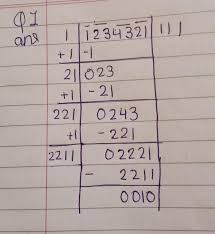 Q1
ans 1 | 1 2 3 4 3 2 1 | 1 1 1
+1 | -1
21 | 0 2 3
+1 | - 2 1
221 | 0 2 4 3
+1 | - 2 2 1
2211 | 0 2 2 2 1
- 2 2 1 1
0 0 1 0